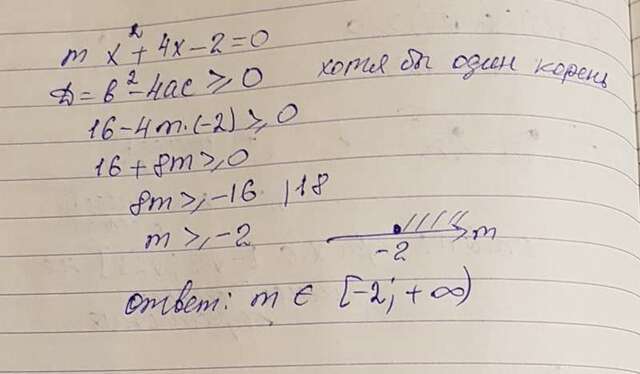 m x² + 4x - 2 = 0
D = b² - 4ac ⩾ 0 хотя бы один корень
16 - 4m·(-2) ⩾ 0
16 + 8m ⩾ 0
8m ⩾ -16 | : 8
m ⩾ -2
-2 m
ответ: m ∈ [-2; +∞)